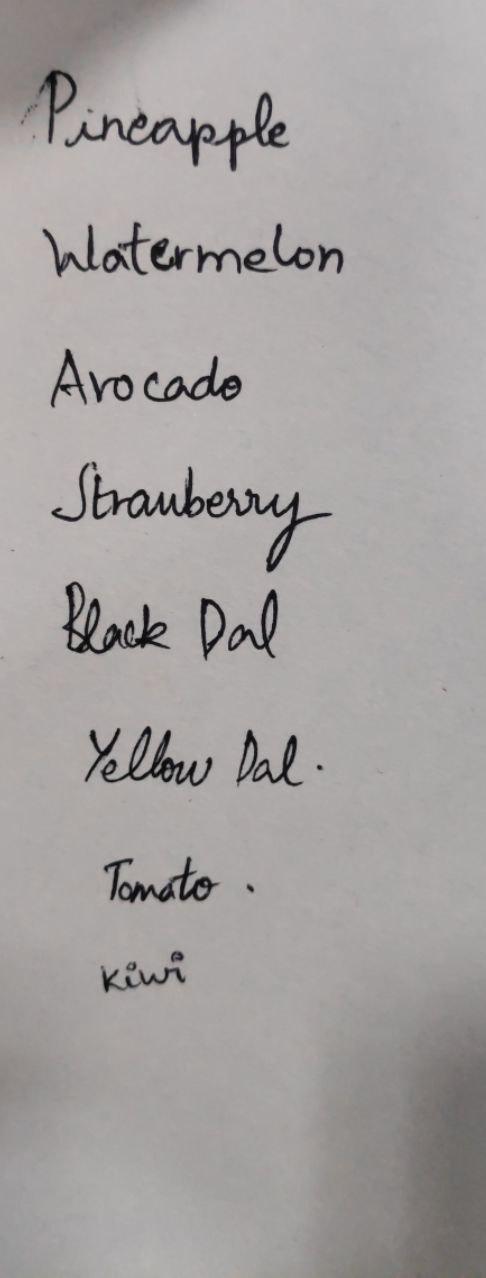 Pineapple
Watermelon
Avocado
Strawberry
Black Dal
Yellow Dal.
Tomato .
Kiwi